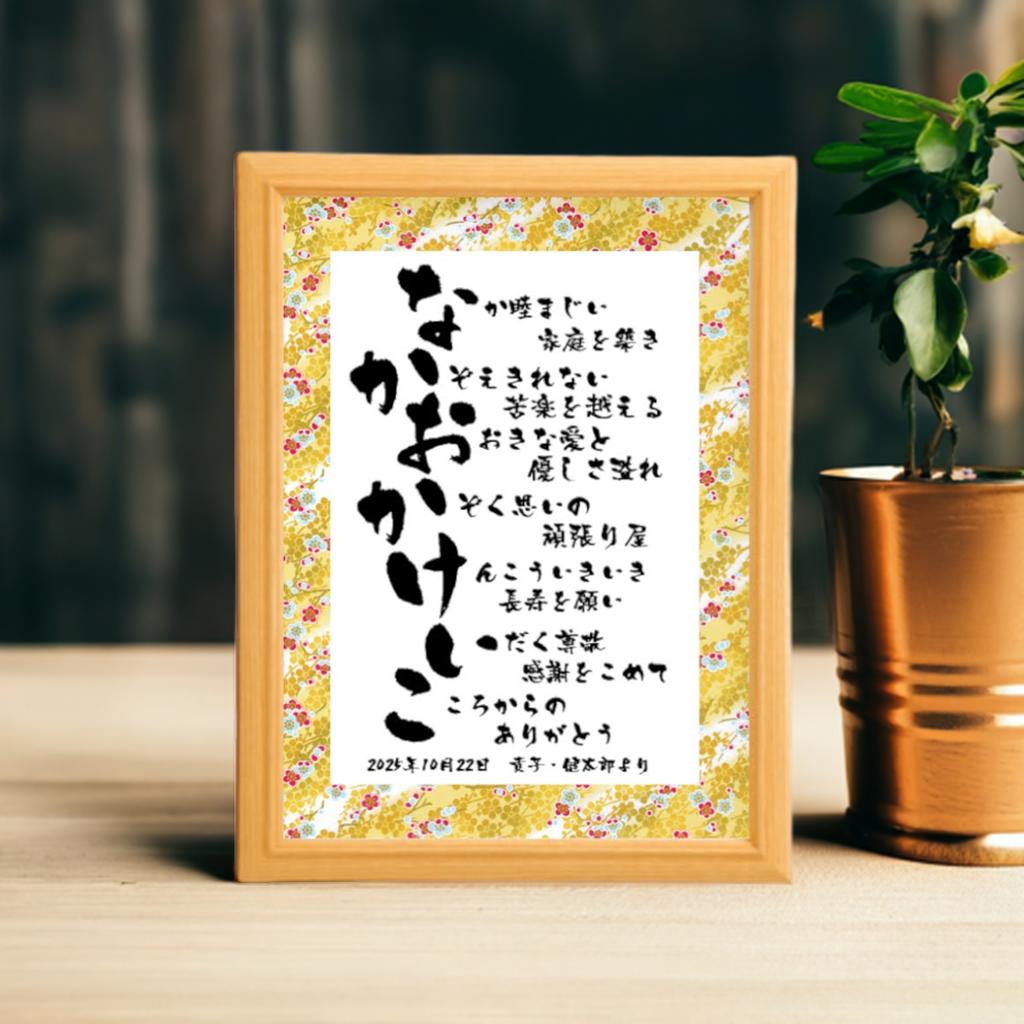 なか睦まじい
家庭を築き
かぞえきれない
苦楽を越える
おおきな愛と
優しさ溢れ
かぞく思いの
頑張り屋
けんこういきいき
長寿を願い
いだく尊敬
感謝をこめて
こころからの
ありがとう
2025年10月22日 貴子・健太郎より